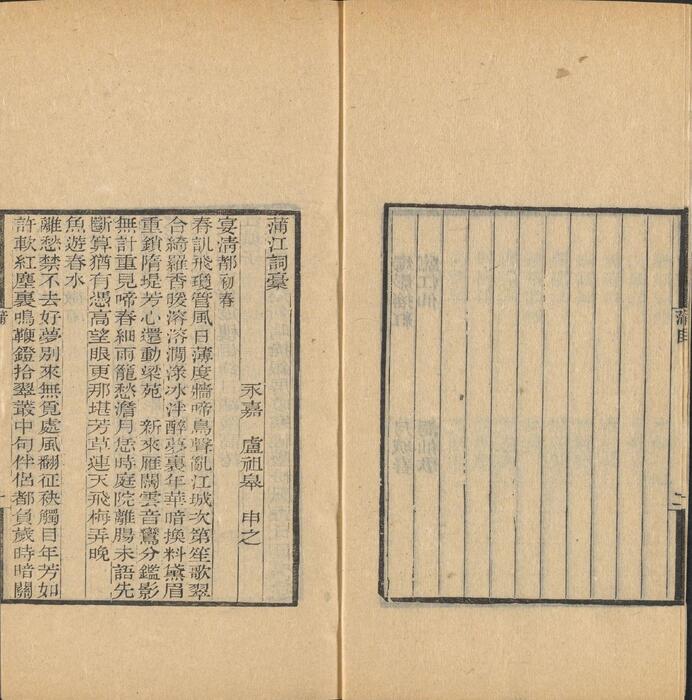 蒲目
二
蒲江詞稾
永嘉　盧祖皋　申之
宴清都初春
春訊飛瓊管風日薄度牆啼鳥聲亂江城次第笙歌翠
合綺羅香暖溶溶澗淥冰泮醉夢裏年華暗換料黛眉
重鎖隋堤芳心還動梁苑　新來雁闊雲音鸞分鑑影
無計重見啼春細雨籠愁澹月恁時庭院離腸未語先
斷算猶有憑高望眼更那堪芳草連天飛梅弄晚
魚遊春水
離愁禁不去好夢別來無覓處風翻征袂觸目年芳如
許軟紅塵裏鳴鞭鐙拾翠叢中句伴侶都負歲時暗關